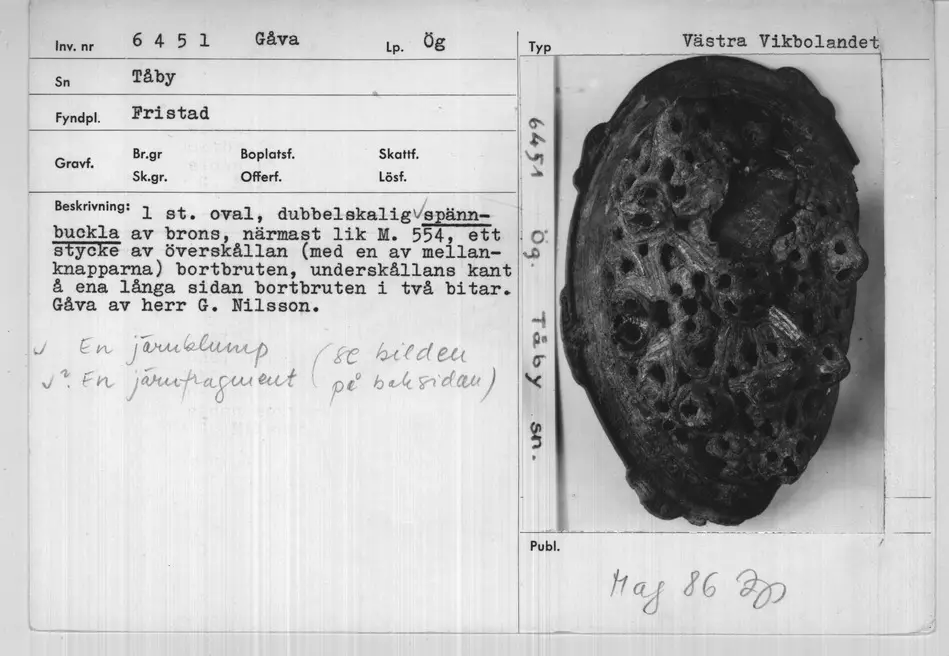 Inv. nr 6 4 5 1 Gåva Lp. Ög
Sn Tåby
Fyndpl. Fristad
Gravf. Br.gr Boplatsf. Skattf.
Sk.gr. Offerf. Lösf.
Beskrivning: 1 st. oval, dubbelskalig spänn-
buckla av brons, närmast lik M. 554, ett
stycke av överskållan (med en av mellan-
knapparna) bortbruten, underskållans kant
å ena långa sidan bortbruten i två bitar.
Gåva av herr G. Nilsson.
En järnklump (se bilden
En järnfragment på baksidan)
Typ Västra Vikbolandet
6451 Ög. Tåby sn.
Publ.
Maj 86